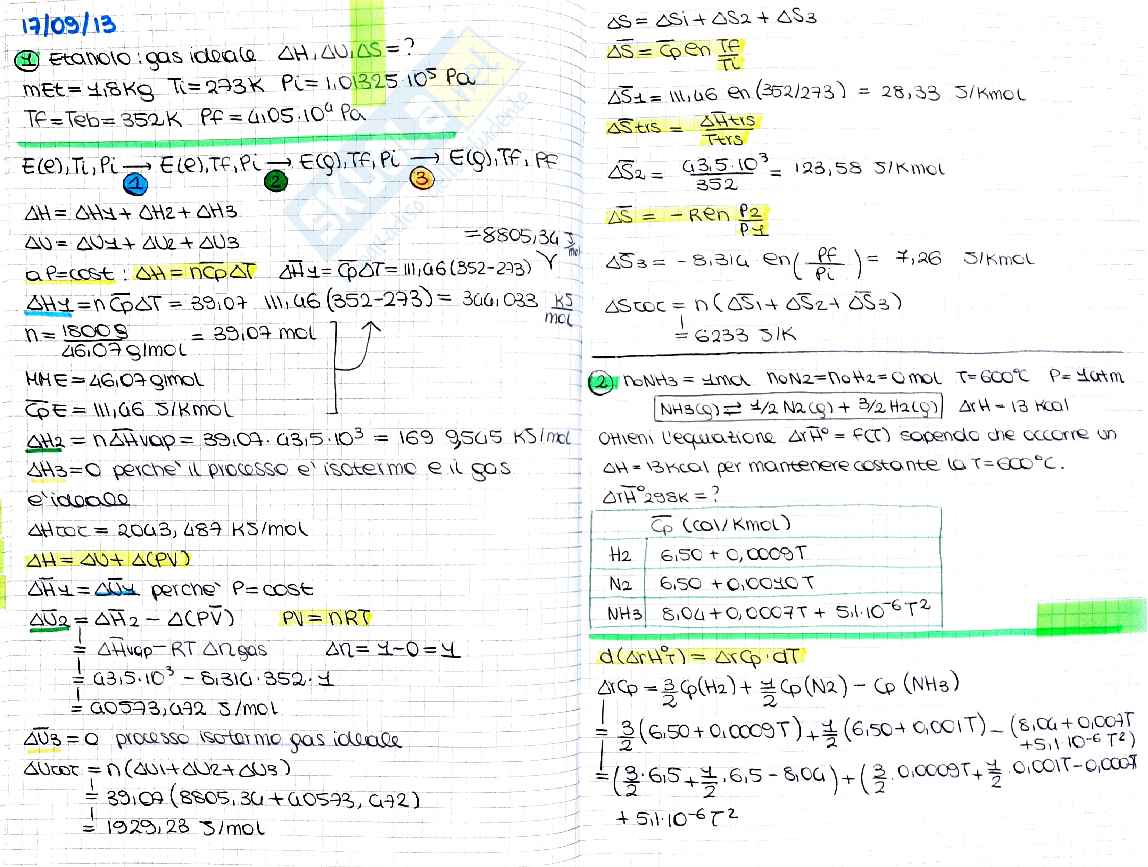 17/09/13
1 Etanolo: gas ideale ΔH, ΔU, ΔS = ?
mEt = 1,8Kg Ti = 273K Pi = 1,01325·10⁵ Pa
Tf = Teb = 352K Pf = 4,05·10⁴ Pa
E(l),Ti,Pi → E(l),Tf,Pi → E(g),Tf,Pi → E(g),Tf,Pf
1 2 3
ΔH = ΔH1 + ΔH2 + ΔH3
ΔU = ΔU1 + ΔU2 + ΔU3
= 8805,34 J/mol
a P=cost: ΔH = nC̅pΔT ΔH̅1 = C̅pΔT = 111,46(352-273)
ΔH1 = nC̅pΔT = 39,07 111,46(352-273) = 344,033 KJ/mol
n = 1800g / 46,07 g/mol = 39,07 mol
MME = 46,07 g/mol
C̅pE = 111,46 J/Kmol
ΔH2 = nΔH̅vap = 39,07·43,5·10³ = 169 9,545 KJ/mol
ΔH3 = 0 perche' il processo e' isotermo e il gas
e' ideale
ΔHtot = 2043,487 KJ/mol
ΔH = ΔU + Δ(PV)
ΔH̅1 = ΔU̅1 perche' P=cost
ΔU̅2 = ΔH̅2 - Δ(PV̅) PV = nRT
= ΔH̅vap - RTΔngas Δn = 1-0 = 1
= 43,5·10³ - 8,314·352·1
= 40573,472 J/mol
ΔU̅3 = 0 processo isotermo gas ideale
ΔUtot = n(ΔU1+ΔU2+ΔU3)
= 39,07(8805,34 + 40573,472)
= 1929,23 J/mol
ΔS = ΔS1 + ΔS2 + ΔS3
ΔS̅ = C̅p ln Tf/Ti
ΔS̅1 = 111,46 ln(352/273) = 28,33 J/Kmol
ΔS̅trs = ΔH̅trs/Ttrs
ΔS̅2 = 43,5·10³/352 = 123,58 J/Kmol
ΔS̅ = -R ln P2/P1
ΔS̅3 = -8,314 ln(Pf/Pi) = 7,26 J/Kmol
ΔStot = n(ΔS̅1 + ΔS̅2 + ΔS̅3)
= 6233 J/K
2 n₀NH3 = 1mol n₀N2 = n₀H2 = 0 mol T=600°C P=1atm
NH3(g) ⇌ 1/2 N2(g) + 3/2 H2(g) ΔrH = 13 Kcal
Ottieni l'equazione ΔrH̅° = f(T) sapendo che occorre un
ΔH = 13Kcal per mantenere costante la T=600°C.
ΔrH̅°298K = ?
C̅p (cal/Kmol)
H2 6,50 + 0,0009T
N2 6,50 + 0,0010T
NH3 8,04 + 0,0007T + 5,1·10⁻⁶T²
d(ΔrH°T) = ΔrCp·dT
ΔrCp = 3/2 Cp(H2) + 1/2 Cp(N2) - Cp(NH3)
= 3/2(6,50+0,0009T) + 1/2(6,50+0,001T) - (8,04+0,007T
+5,1 10⁻⁶T²)
= (3/2·6,5 + 1/2·6,5 - 8,04) + (3/2·0,0009T + 1/2·0,001T - 0,0007T
+ 5,1·10⁻⁶T²